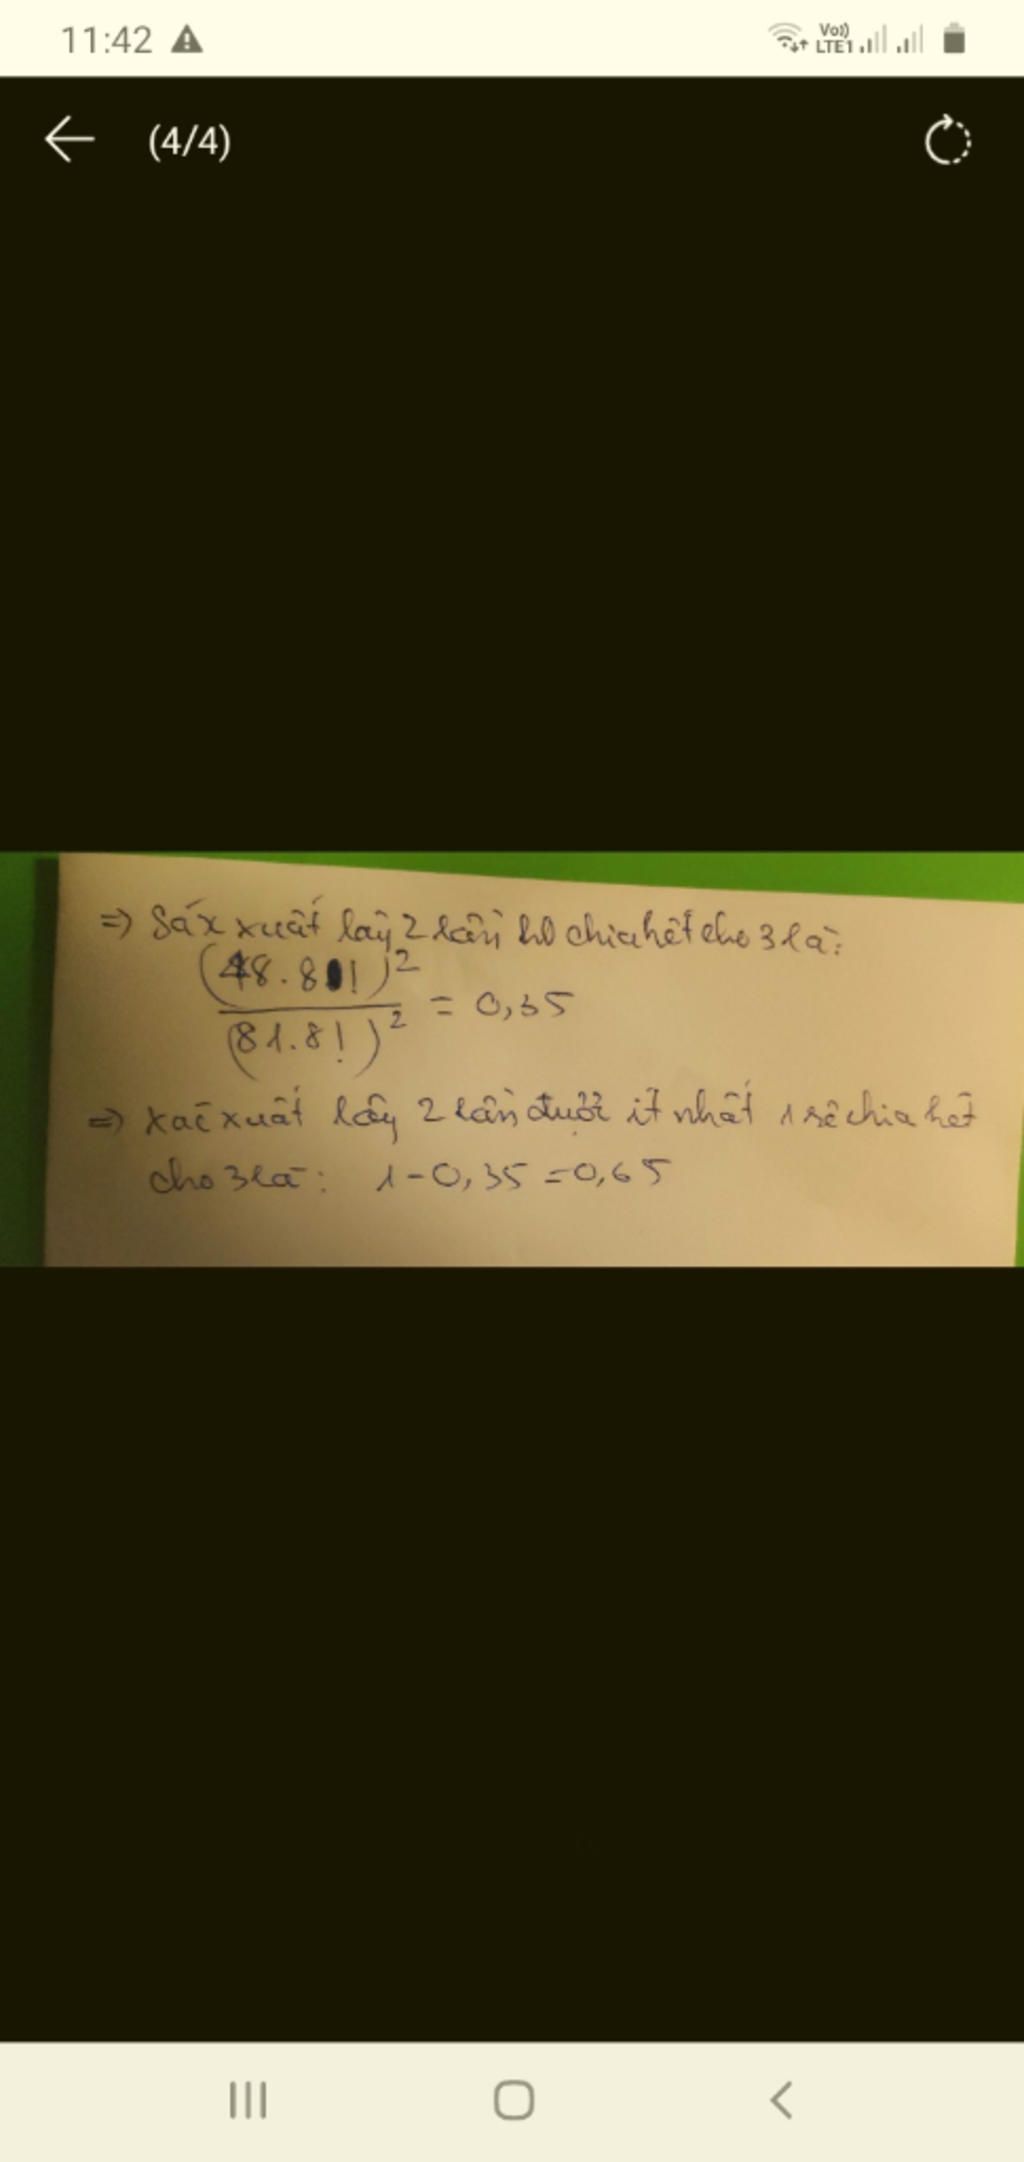 11:42
Vo)) LTE1
(4/4)
=> Sáx xuất lấy 2 lần ko chia hết cho 3 là:
(48.8!)²
(81.8!)²
= 0,35
=> xác xuất lấy 2 lần được ít nhất 1 số chia hết
cho 3 là: 1-0,35=0,65